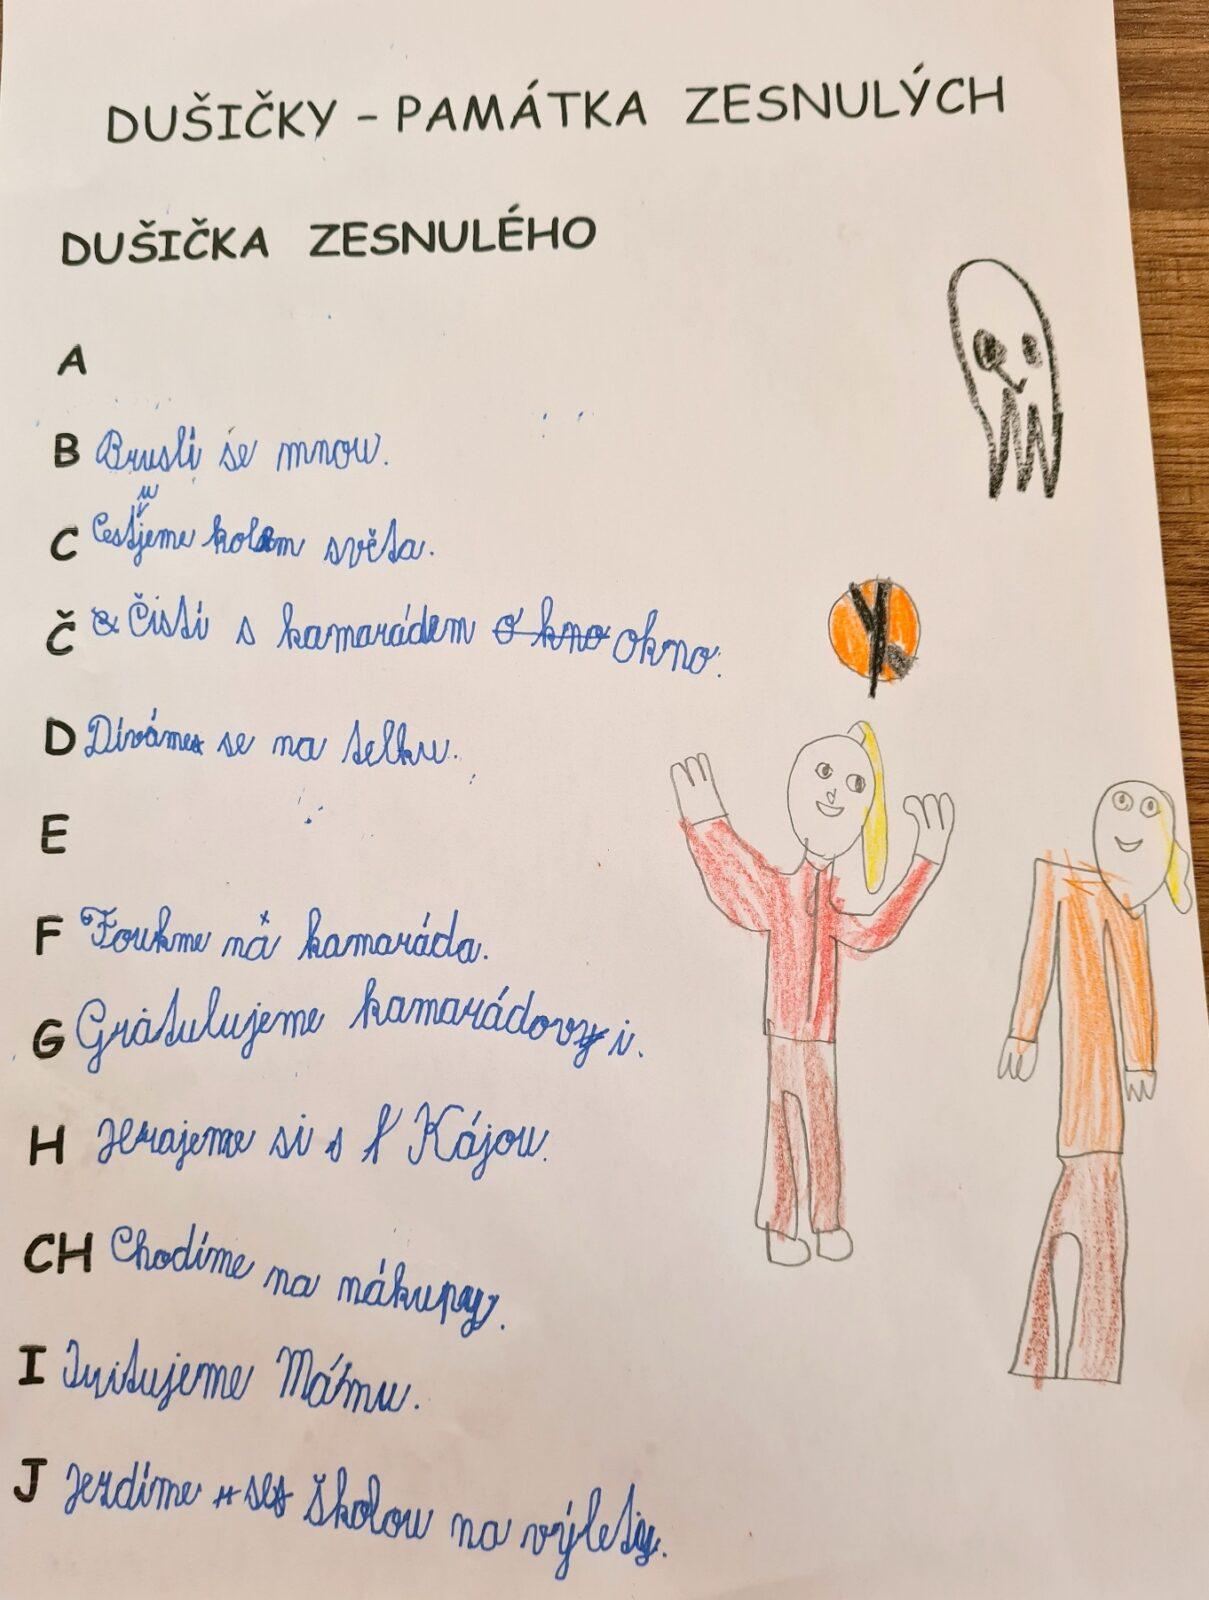 DUŠIČKY - PAMÁTKA ZESNULÝCH
DUŠIČKA ZESNULÉHO
A
B Brusli se mnou.
C Cestujeme kolem světa.
Č Čistí s kamarádem okno.
D Díváme se na telku.
E
F Foukme na kamaráda.
G Gratulujeme kamarádovi.
H Hrajeme si s Kájou.
CH Chodíme na nákupy.
I Imitujeme Mámu.
J Jezdíme se školou na výlety.